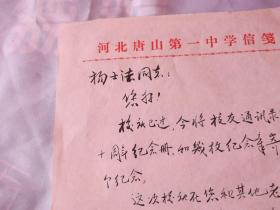 河北唐山第一中学信笺
杨士法同志：
您好！
校庆已过，今将校友通讯录
十周年纪念册、和我校纪念章等
个纪念。
这次校庆在您和其他老